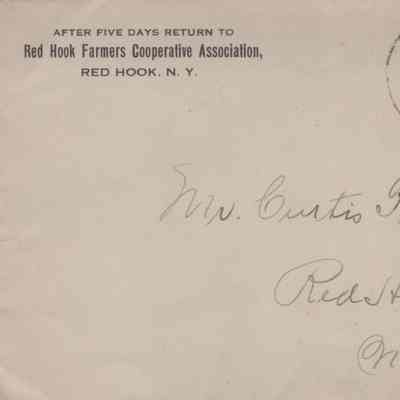 AFTER FIVE DAYS RETURN TO
Red Hook Farmers Cooperative Association,
RED HOOK, N. Y.
Mr. Curtis
Red